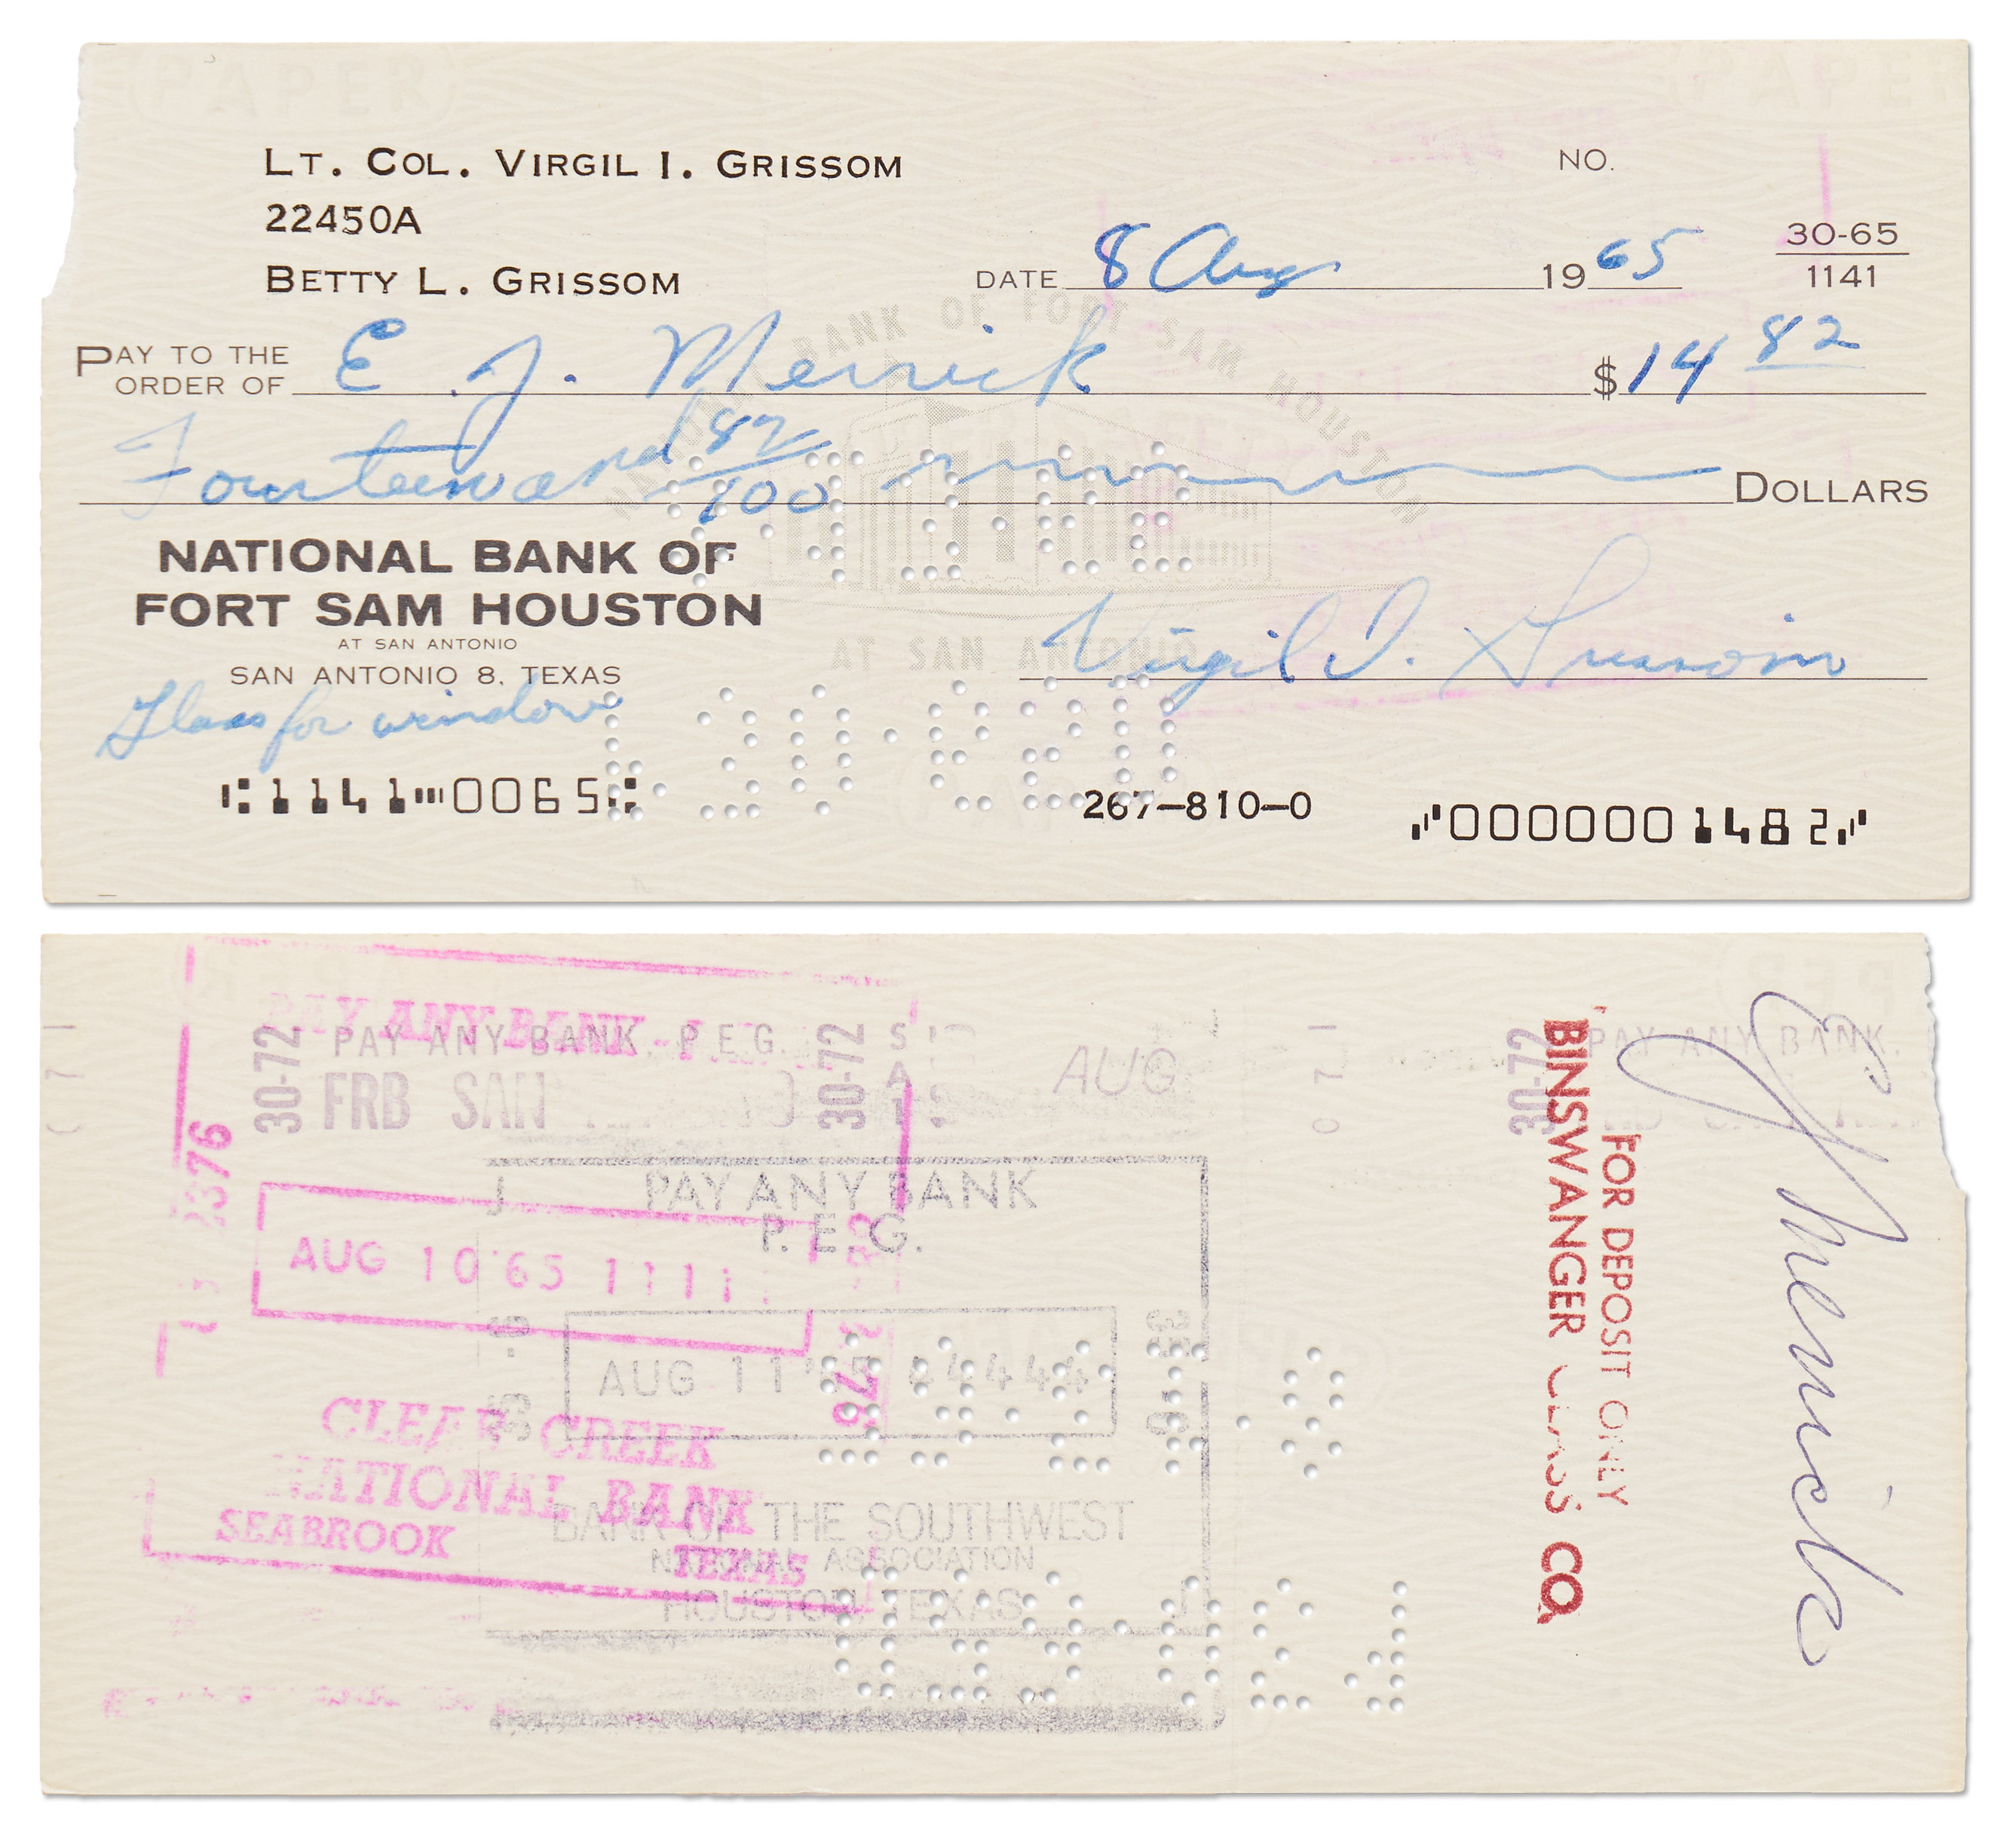 PAPER PAPER
LT. COL. VIRGIL I. GRISSOM NO.
22450A
BETTY L. GRISSOM DATE 8 Aug 1965 30-65
1141
PAY TO THE
ORDER OF E. J. Merrick $14 82
Fourteen and 82/100 DOLLARS
NATIONAL BANK OF FORT SAM HOUSTON
AT SAN ANTONIO
NATIONAL BANK OF
FORT SAM HOUSTON
AT SAN ANTONIO
SAN ANTONIO 8, TEXAS
Virgil I. Grissom
Glass for window
1141 0065
267-810-0
0000001482
PAY ANY BANK
30-72 PAY ANY BANK, P.E.G. 30-72
FRB SAN
AUG
PAY ANY BANK
P. E. G.
AUG 10 '65
AUG 11
CLEAR CREEK
NATIONAL BANK
SEABROOK TEXAS
BANK OF THE SOUTHWEST
NATIONAL ASSOCIATION
HOUSTON TEXAS
30-72 PAY ANY BANK,
FOR DEPOSIT ONLY
BINSWANGER GLASS CO
E J Merrick